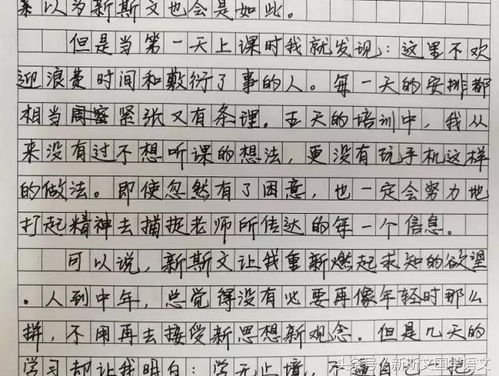 素以为新斯文也会是如此。
但是当第一天上课时我就发现：这里不欢
迎浪费时间和敷衍了事的人。每一天的安排都
相当周密紧张又有条理。五天的培训中，我从
来没有过不想听课的想法，更没有玩手机这样
的做法。即使忽然有了困意，也一定会努力地
打起精神去捕捉老师所传达的每一个信息。
可以说，新斯文让我重新燃起求知的欲望
。人到中年，总觉得没有必要再像年轻时那么
拼，不用再去接受新思想新观念。但是几天的
学习却让我明白：学无止境，不管自己
头条号／新斯文国学语文